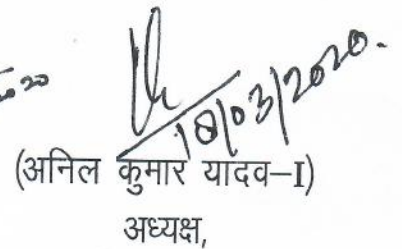 18/03/2020.
(अनिल कुमार यादव–I)
अध्यक्ष,